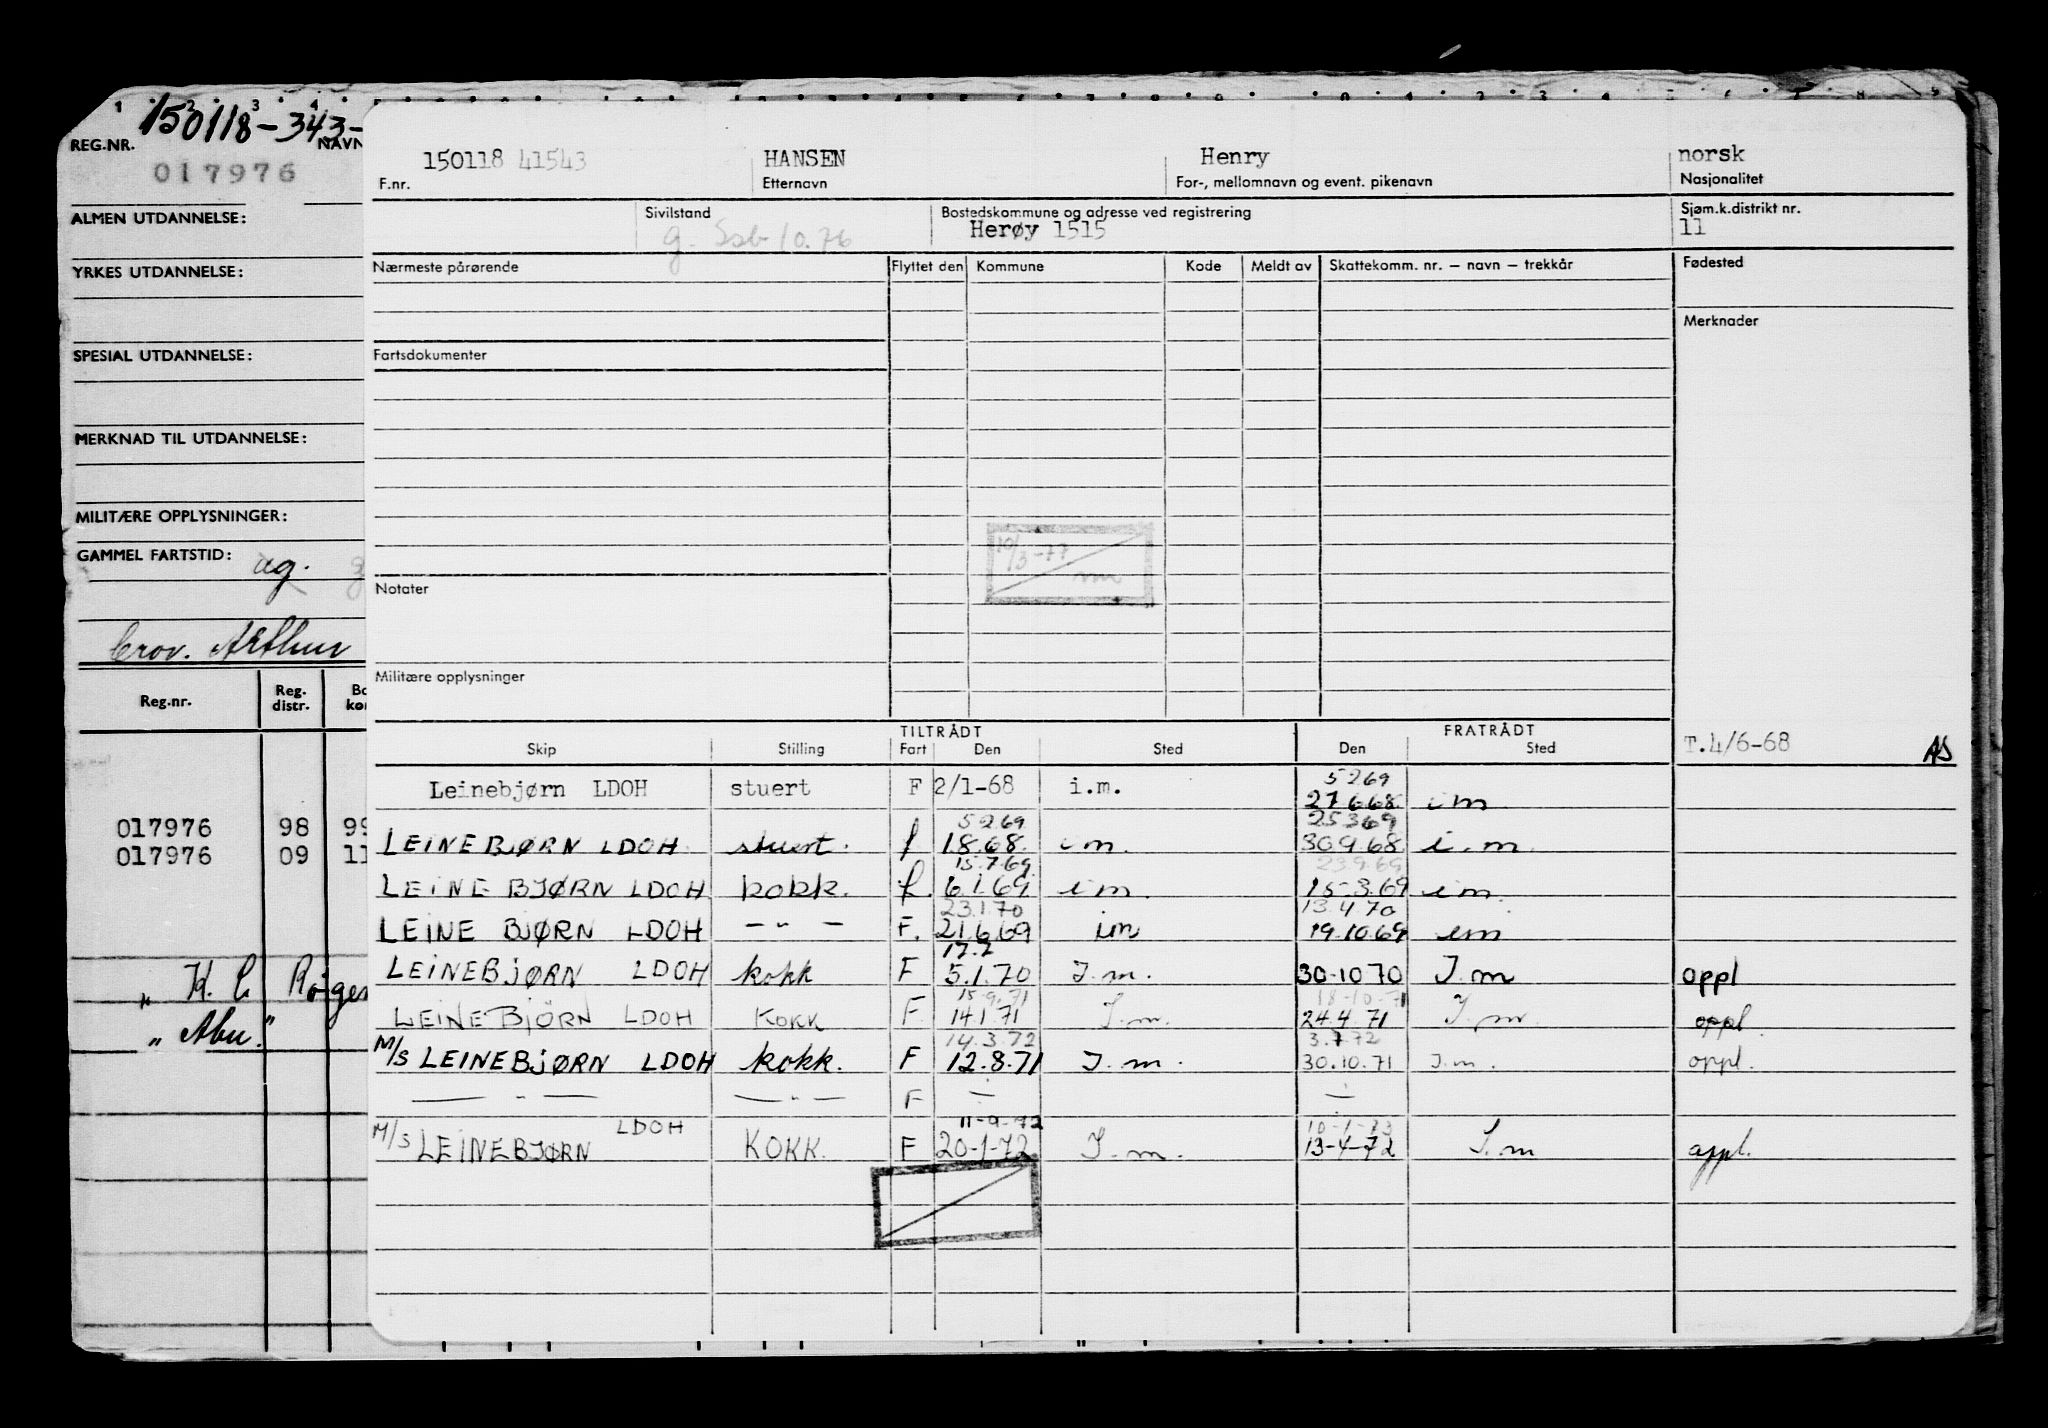 150118-343-
REG.NR.
NAVN
017976
ALMEN UTDANNELSE:
YRKES UTDANNELSE:
SPESIAL UTDANNELSE:
MERKNAD TIL UTDANNELSE:
MILITÆRE OPPLYSNINGER:
GAMMEL FARTSTID:
Arthur
Reg.nr. Reg. distr.
017976 98 99
017976 09 11
" K. C
" Abu."
150118 41543 HANSEN Henry norsk
F.nr. Etternavn For-, mellomnavn og event. pikenavn Nasjonalitet
Sivilstand Bostedskommune og adresse ved registrering Sjøm.k.distrikt nr.
g. Ssb 10.76 Herøy 1515 11
Nærmeste pårørende Flyttet den Kommune Kode Meldt av Skattekomm. nr. – navn – trekkår Fødested
Merknader
Fartsdokumenter
10/3-77
Notater
Militære opplysninger
TILTRÅDT FRATRÅDT
Skip Stilling Fart Den Sted Den Sted T.4/6-68 AS
5269
Leinebjørn LDOH stuert F 2/1-68 i.m. 27.6.68. im
5269 25369
LEINEBJØRN LDOH. stuert. f 1.8.68. im. 30.9.68. i.m.
15.7.69. 23.9.69
LEINE BJØRN LDOH kokk. f. 6.1.69 im 15.3.69 im.
23.1.70 13.4.70
LEINE BJØRN LDOH — " — F. 21.6.69 im 19.10.69 im
17.7
LEINEBJØRN LDOH kokk F 5.1.70 I.m. 30.10 70 I.m oppl
15.9.71 18-10-71
LEINEBJÖRN LDOH KOKK F 14.1.71 I.m. 24.4.71 I.m. oppl.
14.3.72 3.7.72
M/S LEINEBJØRN LDOH kokk. F 12.8.71 I.m. 30.10.71 I.m. oppl.
— " — — " — F - -
11-9-72 10-1-73
M/S LEINEBJØRN LDOH KOKK. F 20-1-72 I.m. 13-4-72 I.m oppl.